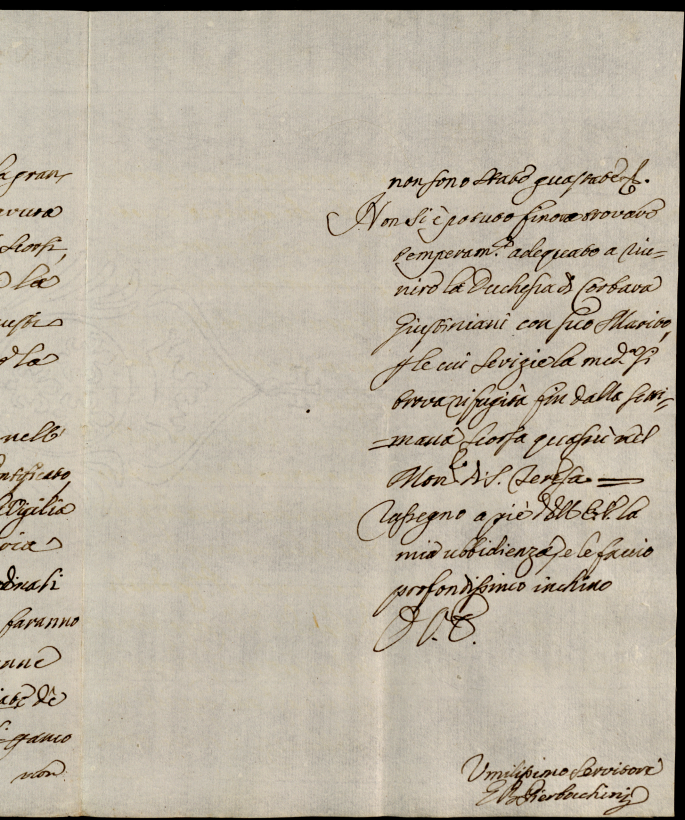 la gran
avura
scorsi,
la
questi
e la
nell'
ontificato,
Vigilia
dinali
faranno
anne
de
franco
non
non sono state guastate.
Non si è potuto finora trovare
temperam.to adequato a riu=
nire la Duchessa di Corbara
Giustiniani con suo Marito,
le cui sevizie la med.a si
trova rifugita fin dalla setti=
=mana scorsa quassù nel
Mon.ro di S. Teresa =
Rassegno a piè dell' E.V. la
mia ubbidienza, e le faccio
profondissimo inchino
D. V. E.
Umilissimo Servitore